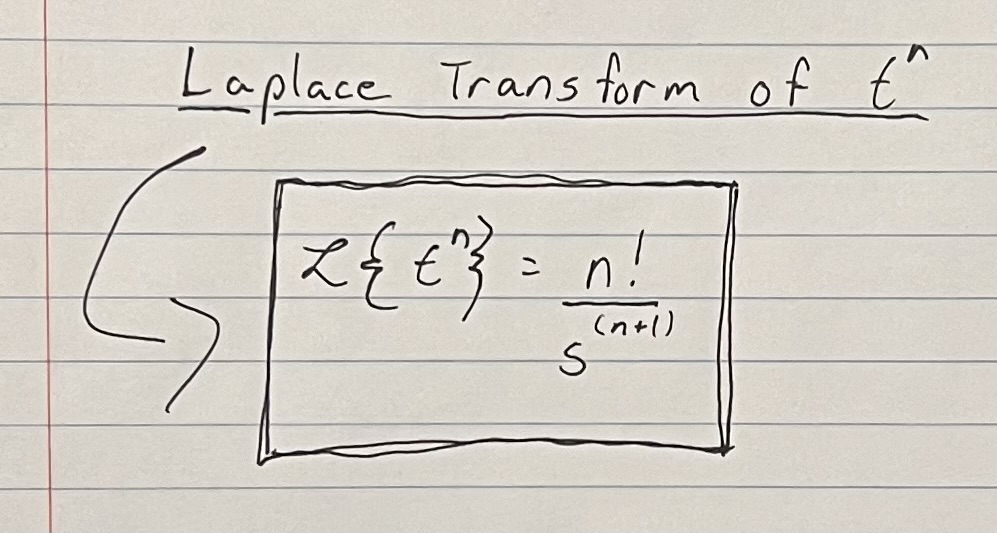 Laplace Transform of tⁿ
ℒ{tⁿ} = n!
s⁽ⁿ⁺¹⁾